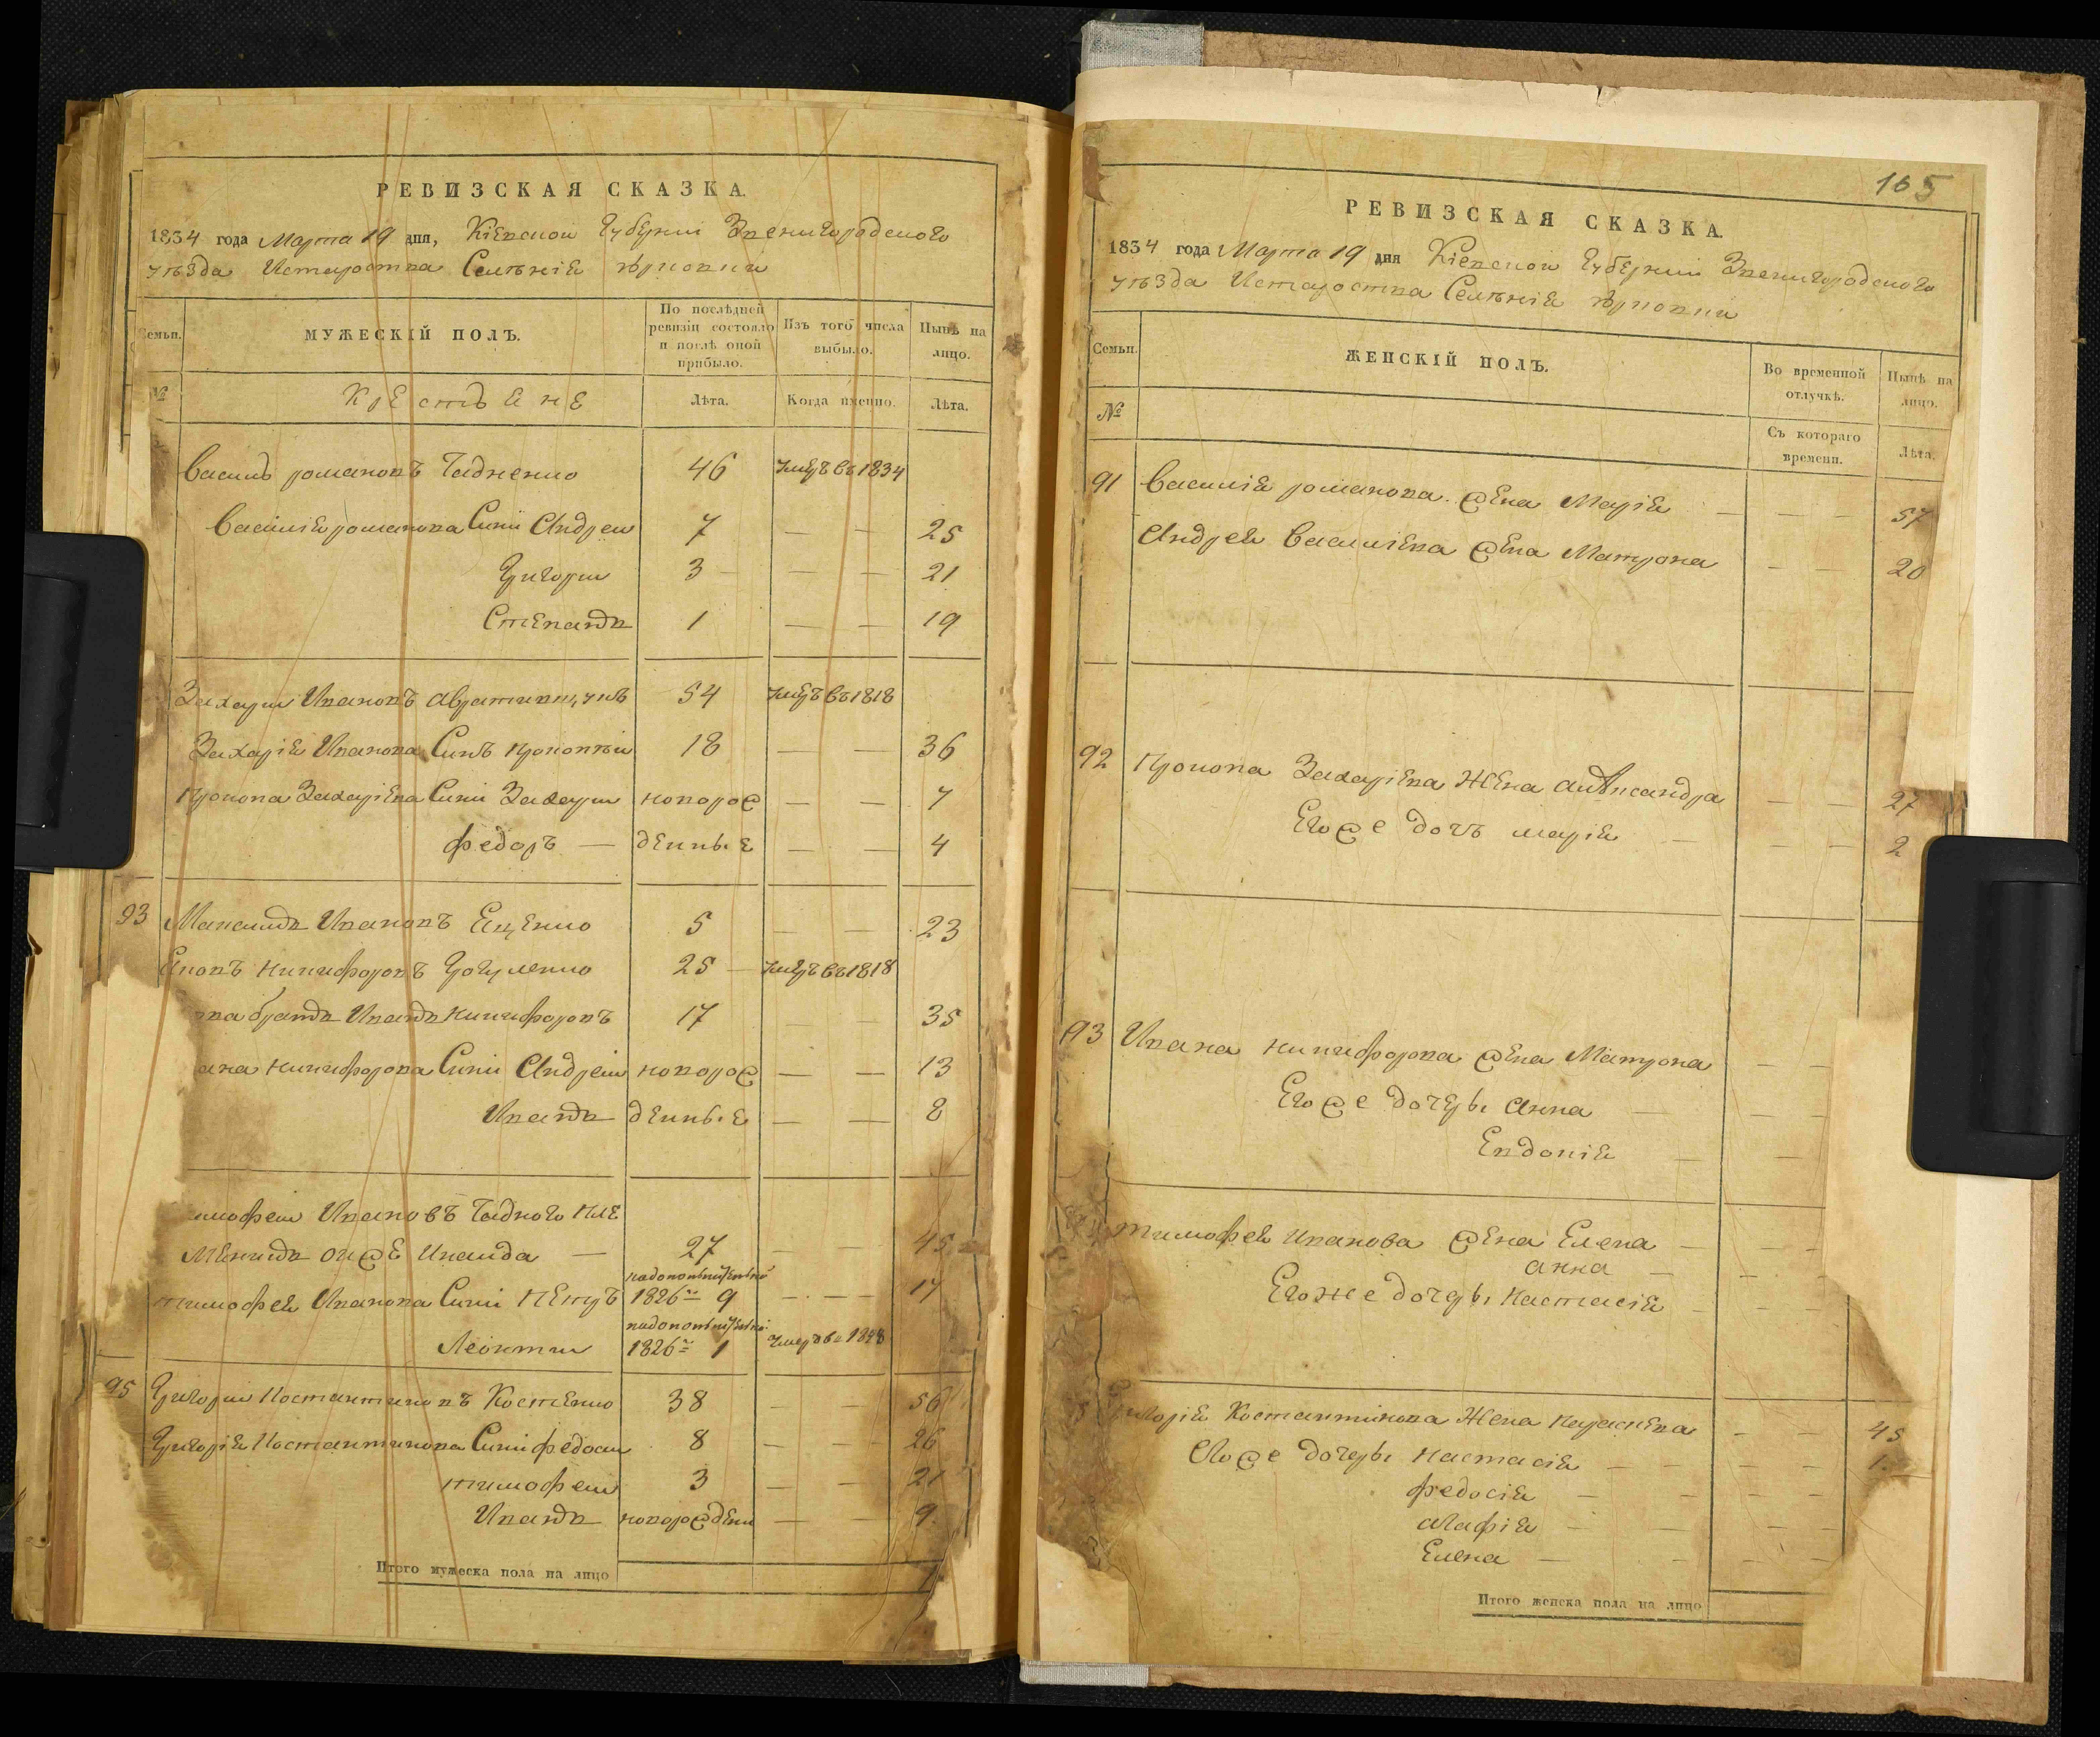 РЕВИЗСКАЯ СКАЗКА.
1834 года Марта 19 дня, Кіевской Губерніи Звенигородского
уѣзда Истароства Селѣнія
Семьи. МУЖЕСКІЙ ПОЛЪ. По послѣдней ревизіи состояло и послѣ оной прибыло. Изъ того числа выбыло. Нынѣ на лицо.
№ Крестьяне Лѣта. Когда именно. Лѣта.
Василь романовъ 46 Умеръ въ 1834
Василія романова Сини Андреи 7 — — 25
Григори 3 — — 21
Степанъ 1 — — 19
Захари Ивановъ 54 Умеръ въ 1818
Захарія Иванова Синъ прокопѣи 18 — — 36
прокопа Захаріева Сини Захари новорож — — 7
федоръ — денные — — 4
93 Ивановъ Еценко 5 — — 23
никифоровъ 25 — Умеръ въ 1818
брать Иванъ никифоровъ 17 — — 35
ана никифорова Сини Андреи новорож — — 13
Иванъ денные — — 8
имофеи Ивановъ
27 — — 45
тимофея Иванова Сини петръ 1826 9 — — 17
Леонти 1826 1 Умеръ въ 1828
95 Григори Костантиновъ Костенко 38 — — 56
Григорія Костантинова Сини федоси 8 — — 26
тимофеи 3 — — 21
Иванъ новорождени — — 9
Итого мужеска пола на лицо
165
РЕВИЗСКАЯ СКАЗКА.
1834 года Марта 19 дня Кіевской Губерніи Звенигородского
уѣзда Истароства Селѣнія
Семьи. ЖЕНСКІЙ ПОЛЪ. Во временной отлучкѣ. Нынѣ на лицо.
№ Съ котораго времени. Лѣта.
91 Василія романова жена Марія — — — 57
Андрея Василіева жена Матрона — — 20
92 прокопа Захаріева Жена александра — — 27
Егоже дочъ марія — — — 2
93 Ивана никифорова жена Матрона — —
Егоже дочеры анна — —
Евдокія — —
тимофея иванова жена Елена — — —
анна — —
Егоже дочеры настасія —
Григорія Костантинова Жена параскева — — 45
Егоже дочеры настасія — — — — 1
федосія — — — —
агафія — — — —
Елена — — — —
Итого женска пола на лицо